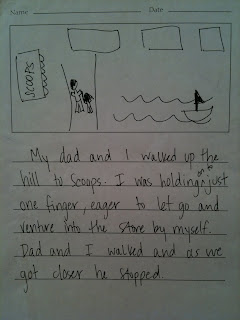 Name Date
SCOOPS
My dad and I walked up the
hill to Scoops. I was holding on just
one finger, eager to let go and
venture into the store by myself.
Dad and I walked and as we
got closer he stopped